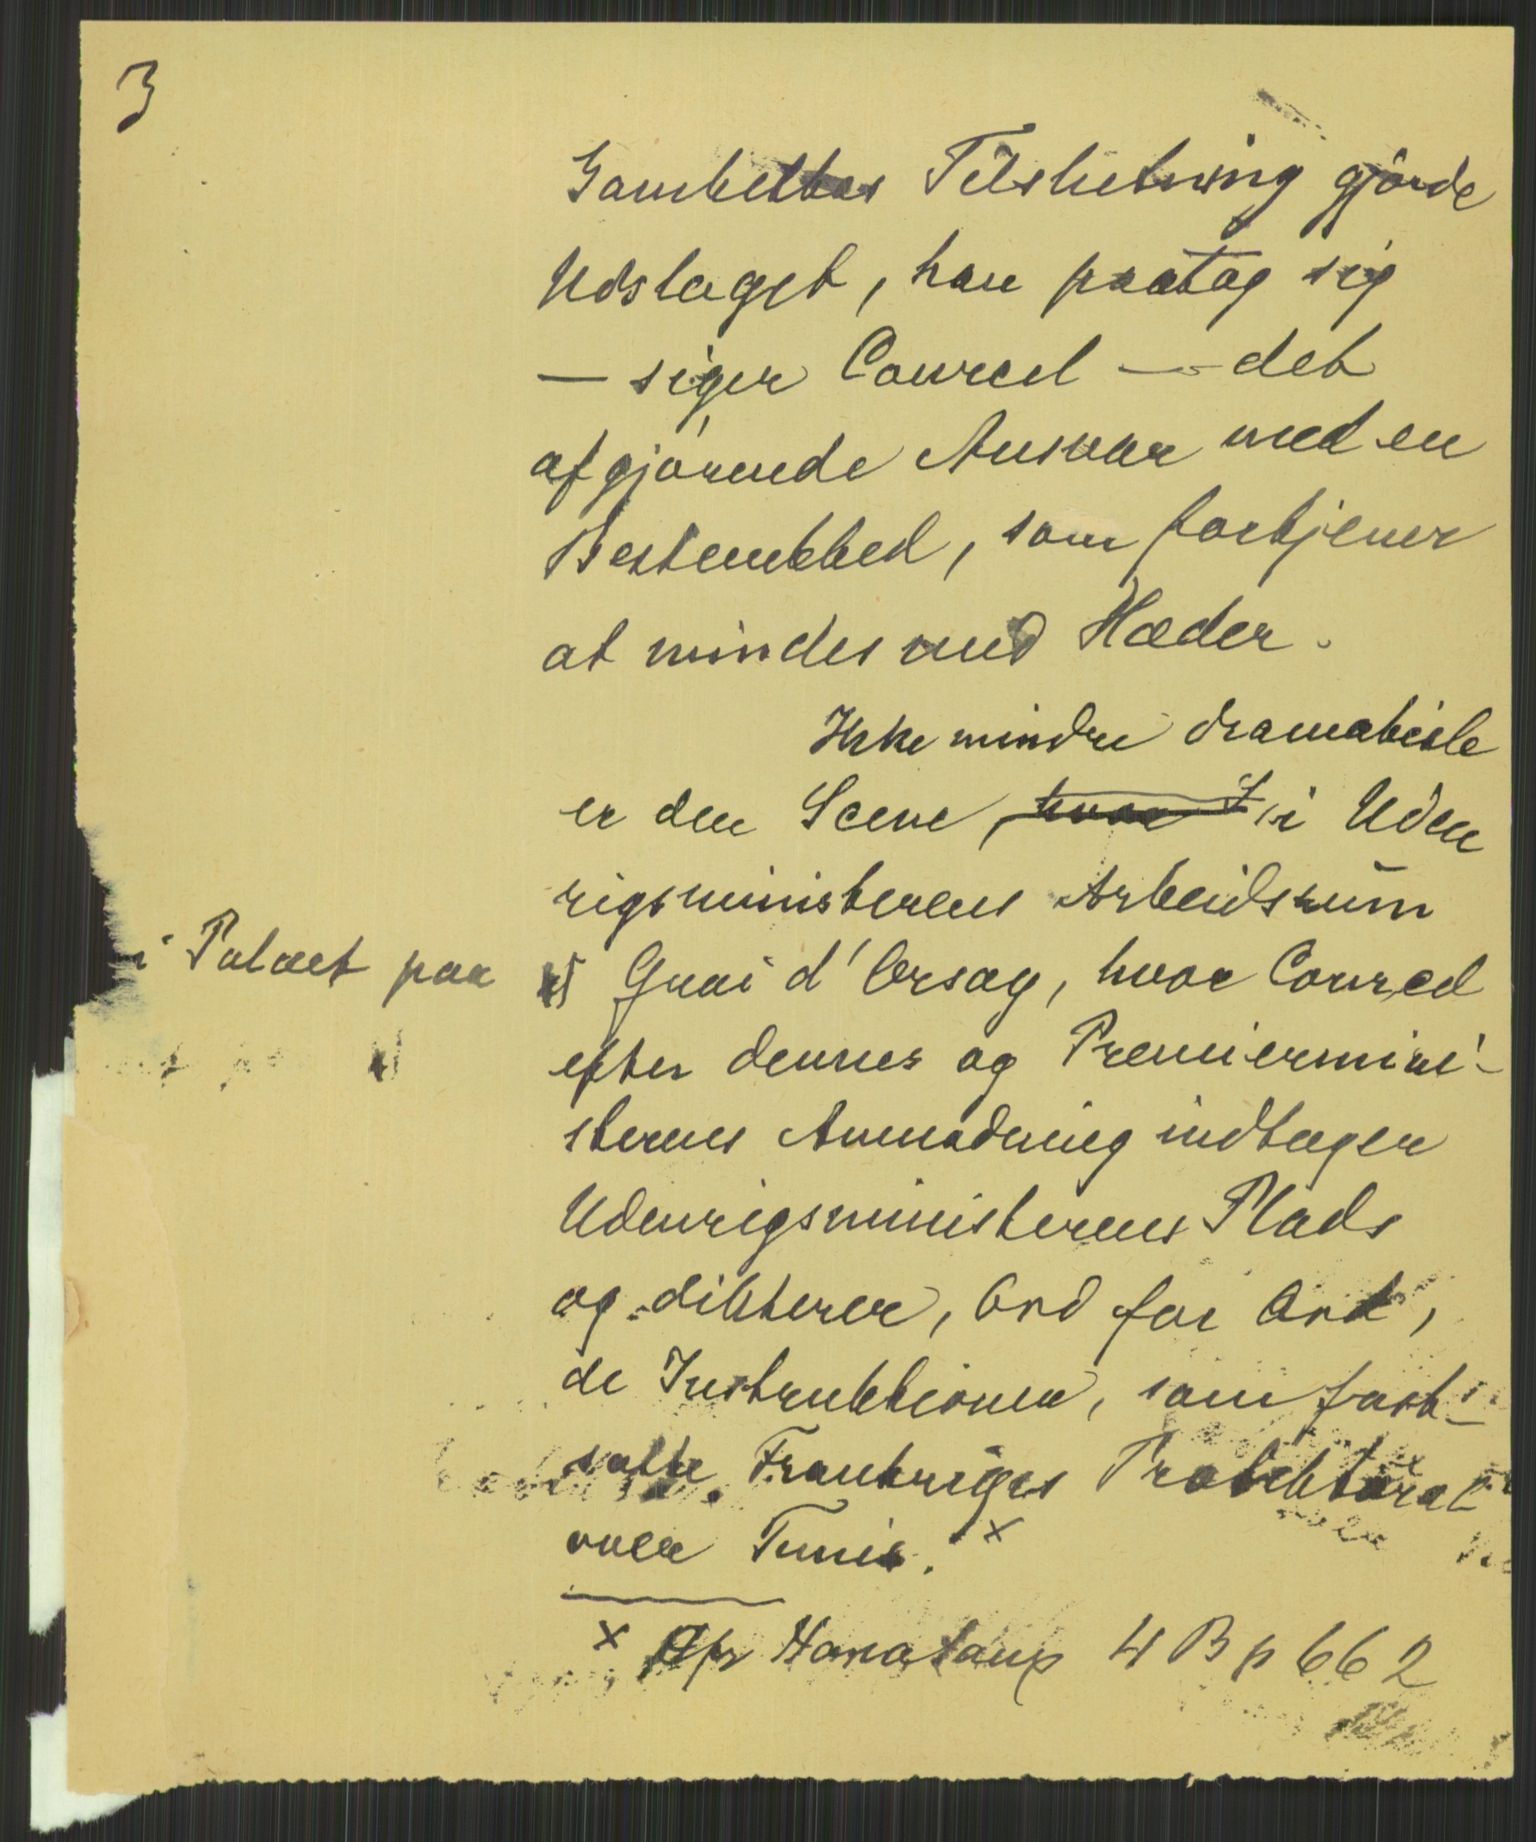 3
Gambettas Tilslutning gjørde
Udslaget, han paatog sig
— siger Courcel — det
afgjørende Ansvar med en
Bestemthed, som fortjener
at mindes med Hæder.
Ikke mindre dramatisk
er den Scene, hvor i Uden
rigsministerens Arbeidsrum
i Palæet paa Quai d'Orsay, hvor Courcel
efter dennes og Premiermini-
sterens Anmodning indtager
Udenrigsministerens Plads
og dikterer, Ord for Ord,
de Instruktioner, som fast-
satte Frankriges Protektorat
over Tunis. x
x Hanotaux 4 B p 662